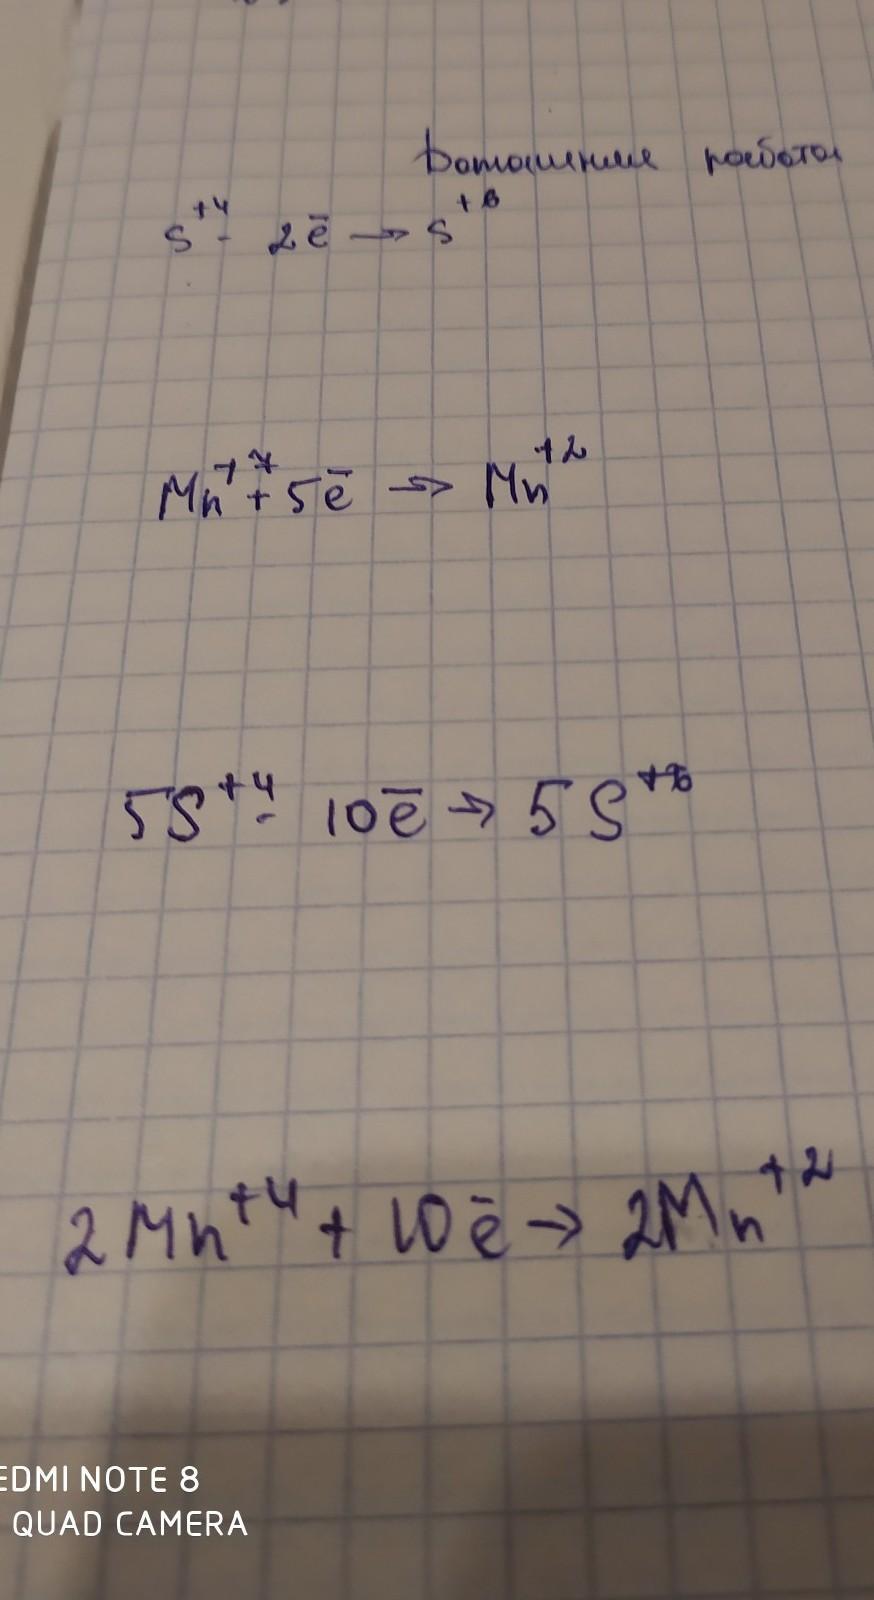 Домашняя работа
S⁺⁴ - 2ē → S⁺⁶
Mn⁺⁷ + 5ē → Mn⁺²
5S⁺⁴ - 10ē → 5S⁺⁶
2Mn⁺⁴ + 10ē → 2Mn⁺²
EDMI NOTE 8
QUAD CAMERA